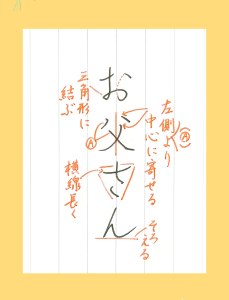 左側より
Ⓐ
中心に寄せる
そろえる
お父さん
Ⓐ
三角形に
結ぶ
横線長く